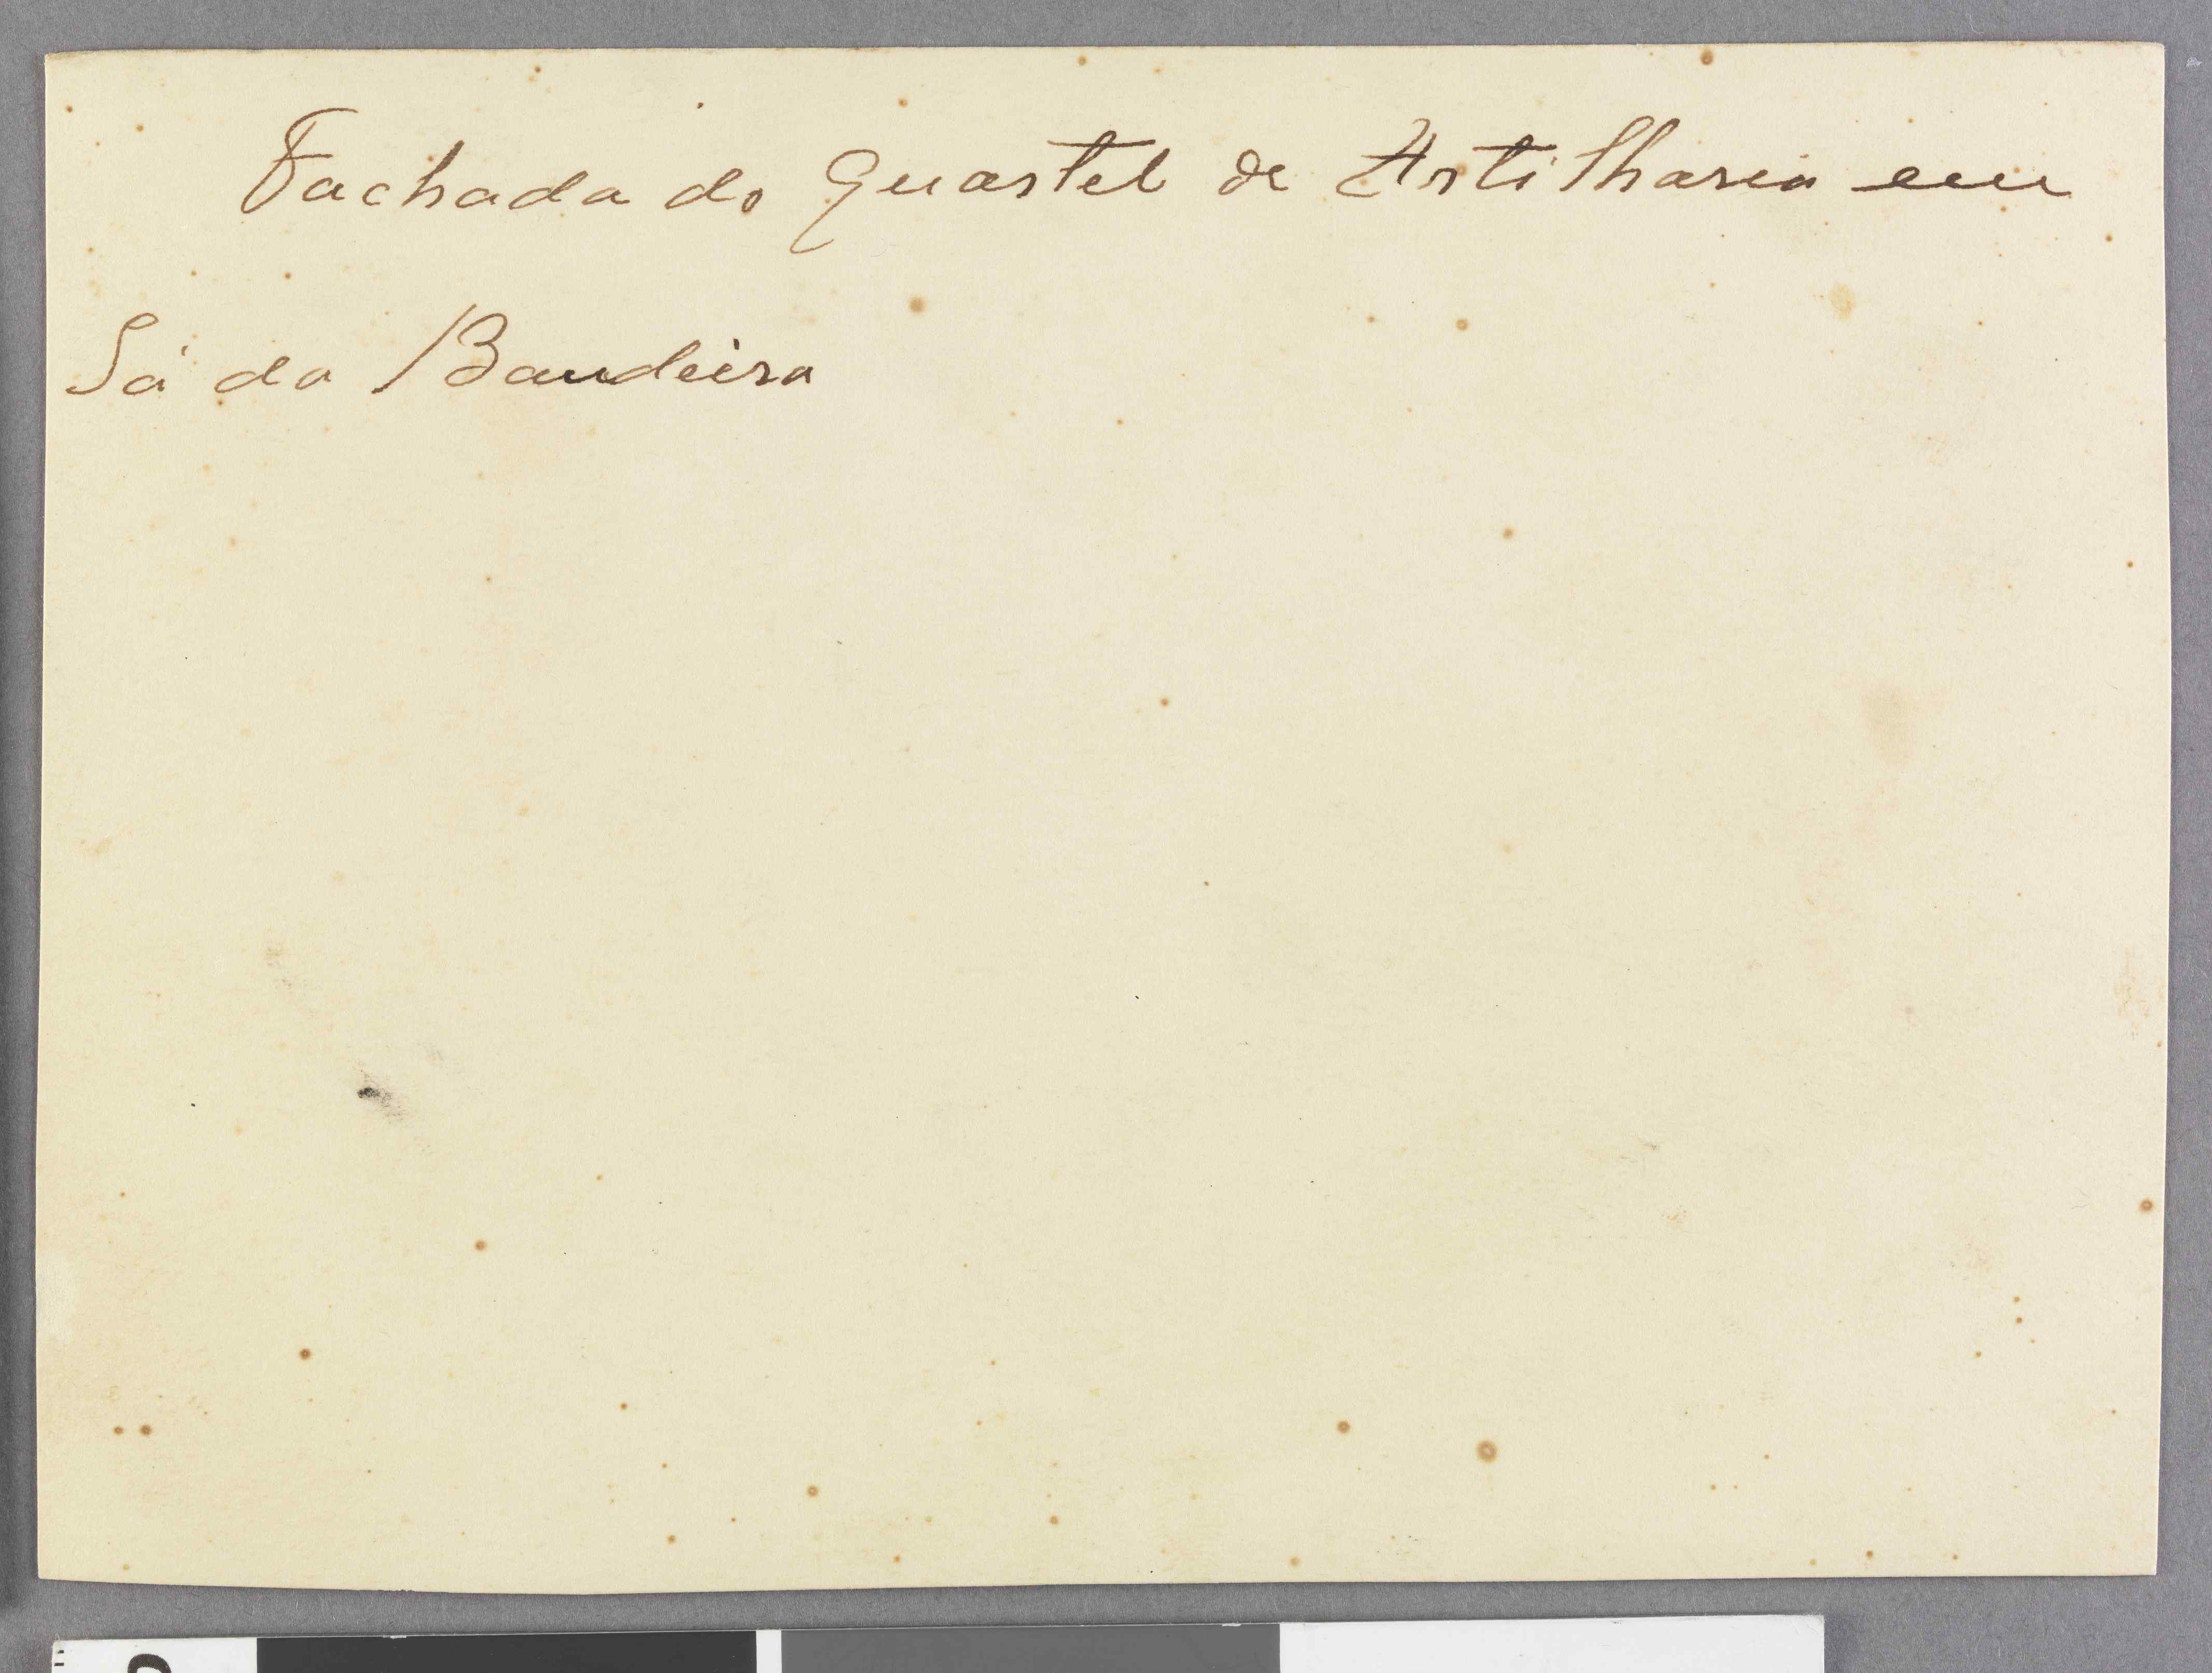 Fachada do Quartel de Artilharia em
Sá da Bandeira